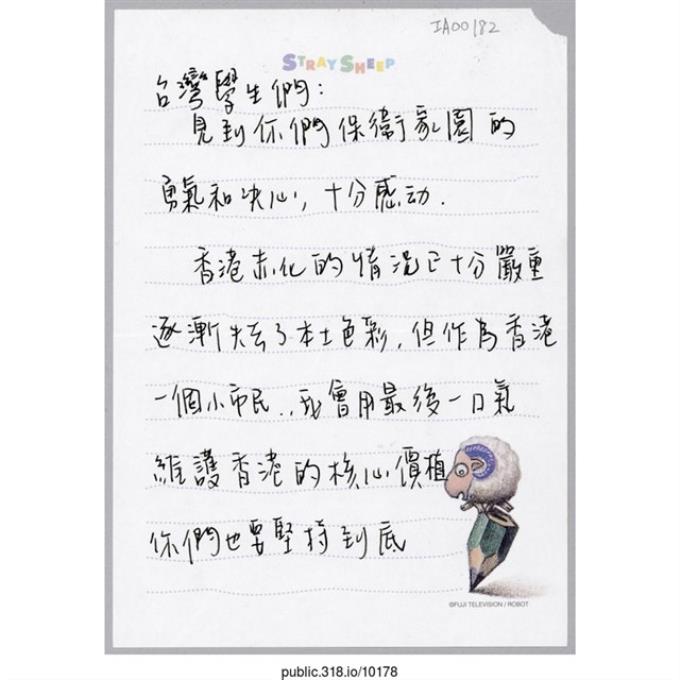 IA00182
STRAY SHEEP
台灣學生們：
見到你們保衛家園的
勇氣和決心，十分感动．
香港赤化的情况已十分嚴重
逐漸失去了本土色彩，但作為香港
一個小市民．，我會用最後一口氣
維護香港的核心價值
你們也要堅持到底
©FUJI TELEVISION / ROBOT
public.318.io/10178